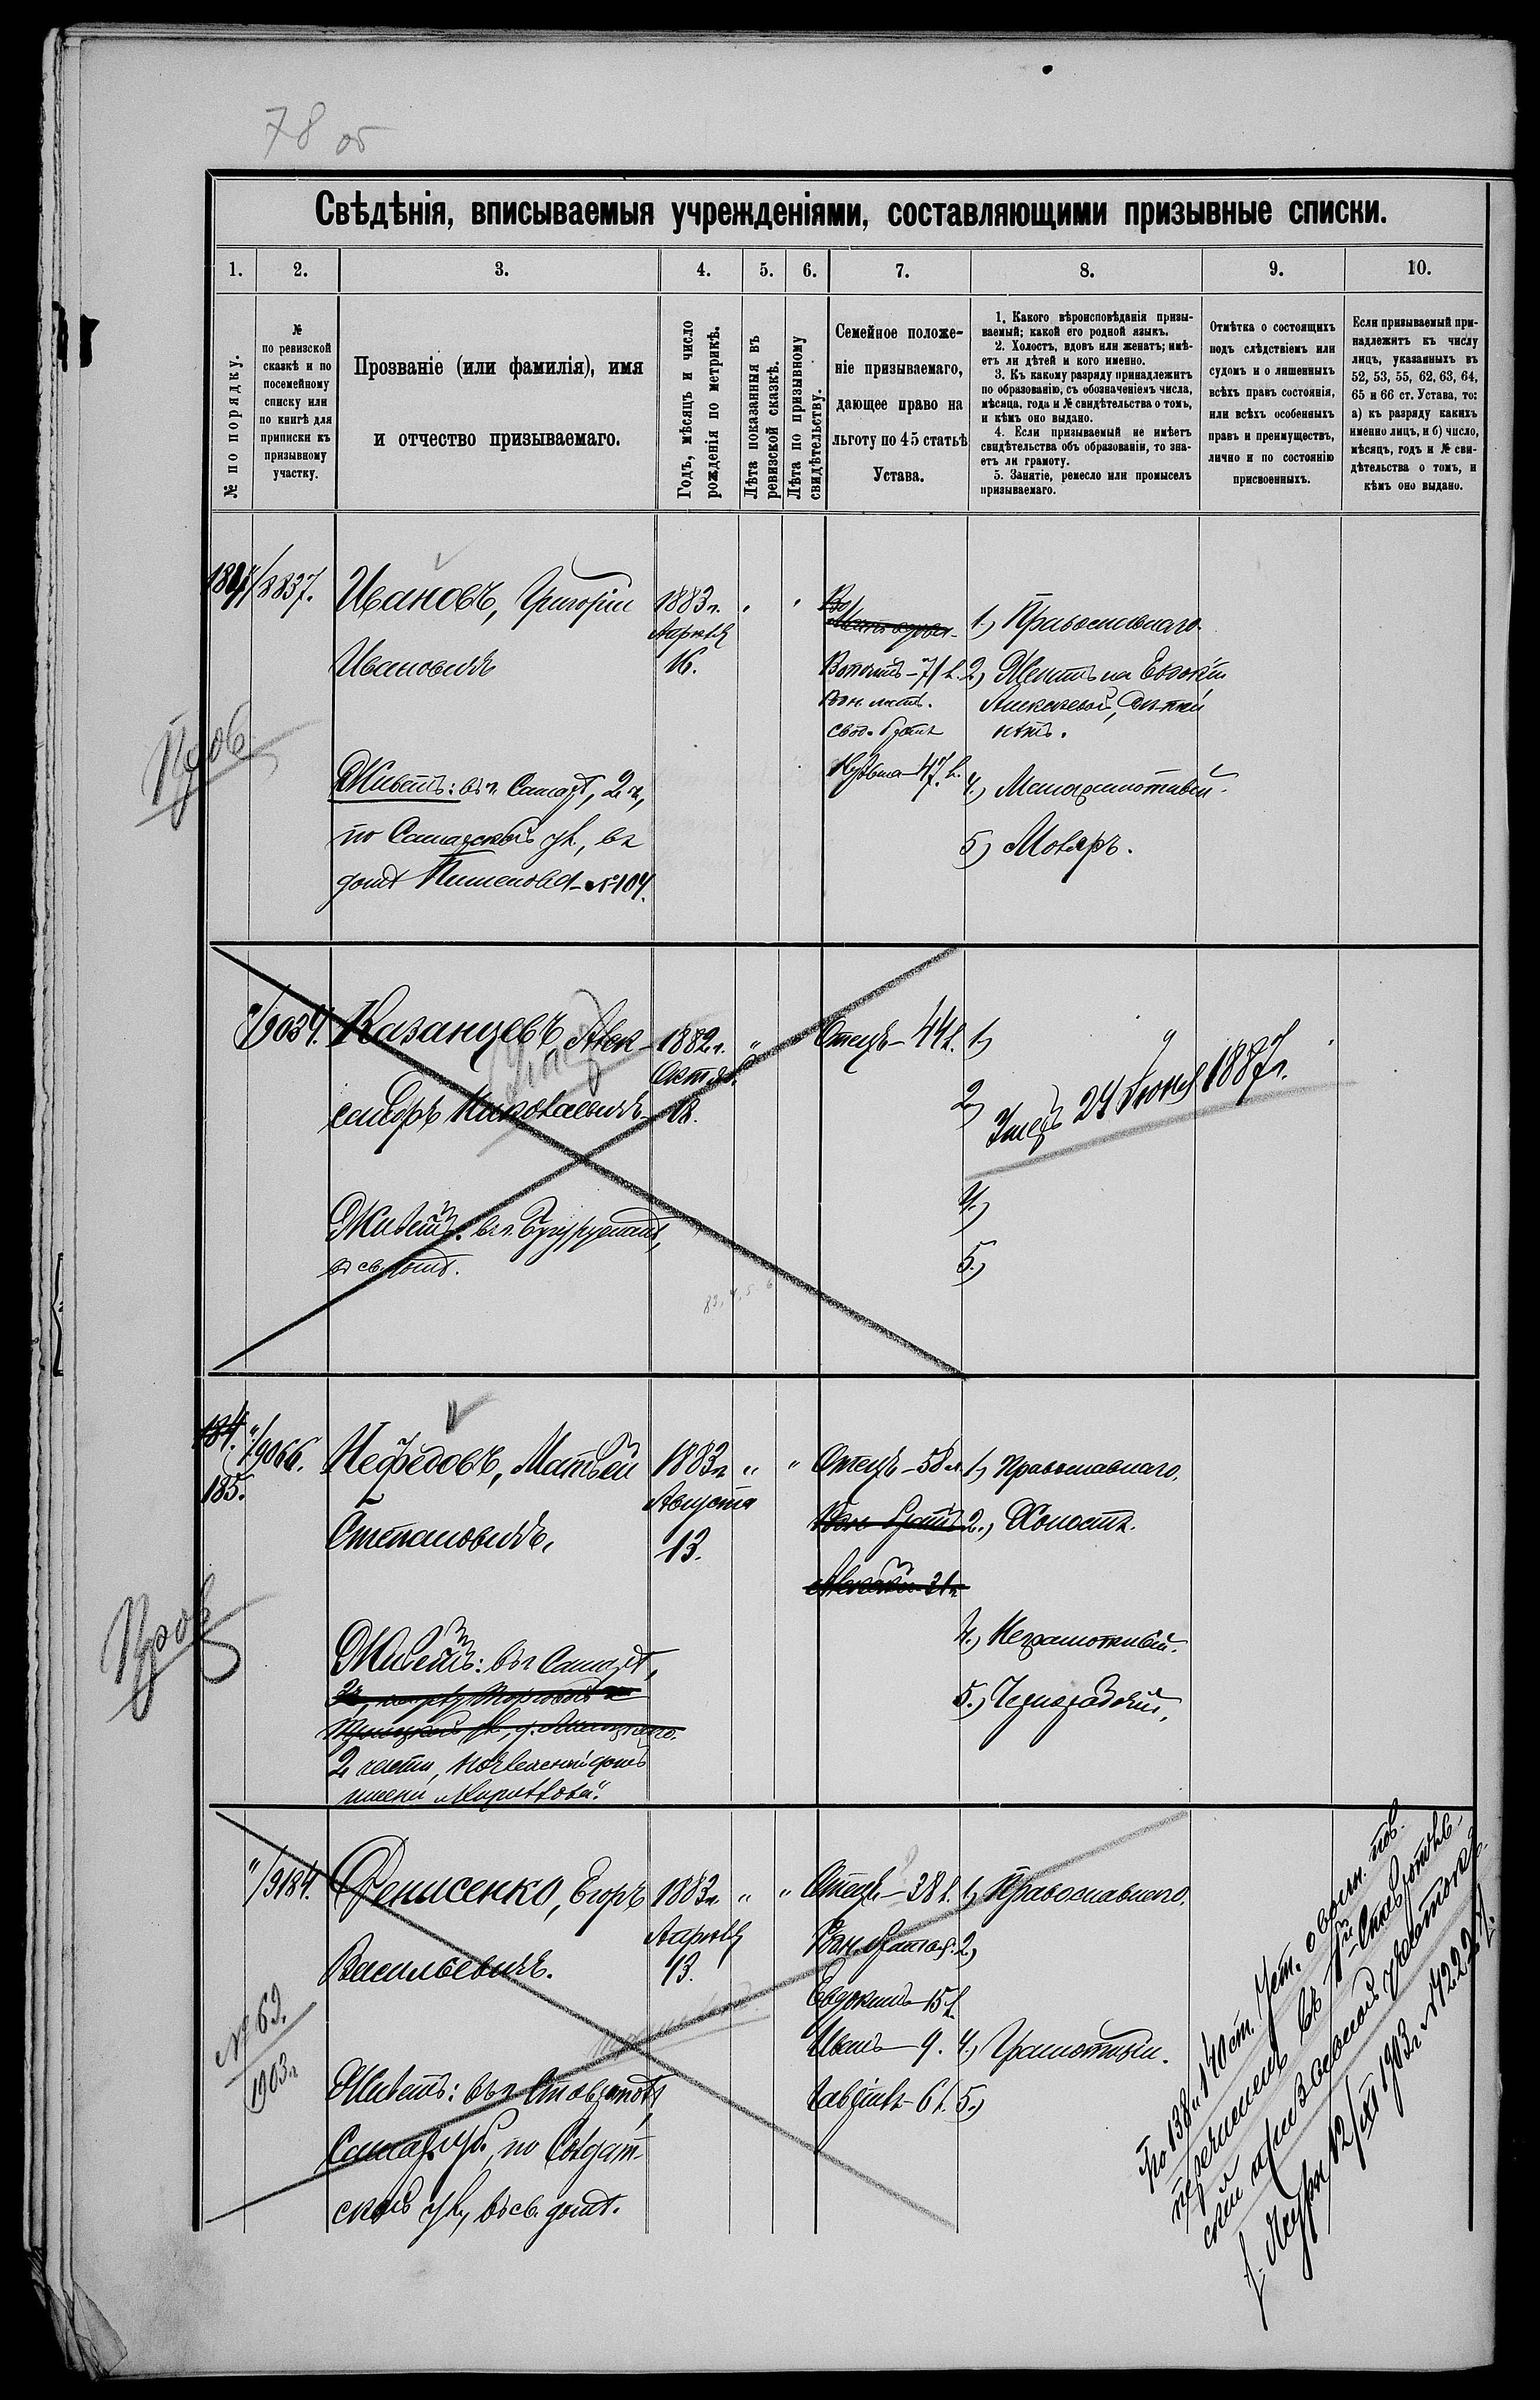 78 об
Свѣдѣнія, вписываемыя учрежденіями, составляющими призывные списки.
1. 2. 3. 4. 5. 6. 7. 8. 9. 10.
№ по порядку.
№
по ревизской
сказкѣ и по
посемейному
списку или
по книгѣ для
приписки къ
призывному
участку.
Прозваніе (или фамилія), имя
и отчество призываемаго.
Годъ, мѣсяцъ и число
рожденія по метрикѣ.
Лѣта показанныя въ
ревизской сказкѣ.
Лѣта по призывному
свидѣтельству.
Семейное положе-
ніе призываемаго,
дающее право на
льготу по 45 статьѣ
Устава.
1. Какого вѣроисповѣданія призы-
ваемый; какой его родной языкъ.
2. Холостъ, вдовъ или женатъ; имѣ-
етъ ли дѣтей и кого именно.
3. Къ какому разряду принадлежитъ
по образованію, съ обозначеніемъ числа,
мѣсяца, года и № свидѣтельства о томъ,
и кѣмъ оно выдано.
4. Если призываемый не имѣетъ
свидѣтельства объ образованіи, то зна-
етъ ли грамоту.
5. Занятіе, ремесло или промыселъ
призываемаго.
Отмѣтка о состоящихъ
подъ слѣдствіемъ или
судомъ и о лишенныхъ
всѣхъ правъ состоянія,
или всѣхъ особенныхъ
правъ и преимуществъ,
лично и по состоянію
присвоенныхъ.
Если призываемый при-
надлежитъ къ числу
лицъ, указанныхъ въ
52, 53, 55, 62, 63, 64,
65 и 66 ст. Устава, то:
а) къ разряду какихъ
именно лицъ, и б) число,
мѣсяцъ, годъ и № сви-
дѣтельства о томъ, и
кѣмъ оно выдано.
8837.
Ивановъ, Григорій
Ивановичъ
1883 г.
Апрѣля
16.
Вотчимъ - 71 л.
Кузьма - 47 л.
1.) Православнаго.
2.) Женатъ на Евдокіи
Алексѣевой, дѣтей
нѣтъ.
4.) Малограмотный.
5.) Моляръ.
Живетъ: въ г. Самарѣ, 2 ч,
по Самарской ул., въ
домѣ Пименова - № 104.
Пров
"/9034.
Казанцевъ Алек-
сандръ Николаевичъ
Умеръ
1882 г.
Октяб.
18.
" "
Отецъ - 44 л.
1)
2)
4.)
5.)
Умеръ 24 Іюня 1887 г.
Живетъ: въ г. Бугурусланѣ,
въ св. домѣ.
83, 4, 5 6
184. "/9066.
185.
Нефедовъ, Матвѣй
Степановичъ.
1883 г.
Августа
13.
" "
Отецъ - 58 л.
1) Православнаго.
2.) Холостъ.
4.) Неграмотный.
5.) Чернорабочій.
Живетъ: въ г. Самарѣ,
2 части, ночлежный домъ
имени "Марьткова".
Пров
"/9184.
Денисенко, Егоръ
Васильевичъ.
1883 г.
Апрѣля
13.
" "
Отецъ - 38 л.
Евдокимъ - 15 л.
Иванъ - 9.
Гавріилъ - 6 л.
1) Православнаго.
2)
4.) Грамотный.
5.)
№ 62.
1903 г
Живетъ: въ г. Ставрополѣ,
Самар. губ., по Солдат-
ской ул, въ св. домѣ.
По 138 и 140 ст. Уст. о воин. пов.
перечисленъ въ 1й Ставрополь-
скій призывной участокъ.
12/XI 1903 г. № 7222.